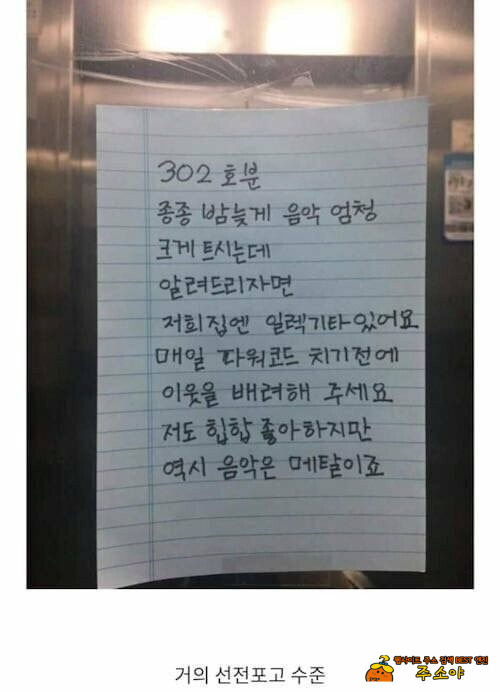 302 호분
종종 밤늦게 음악 엄청
크게 트시는데
알려드리자면
저희집엔 일렉기타있어요
매일 파워코드 치기전에
이웃을 배려해 주세요
저도 힙합 좋아하지만
역시 음악은 메탈이죠
거의 선전포고 수준
웹사이트 주소 검색 BEST 엔진
주소야